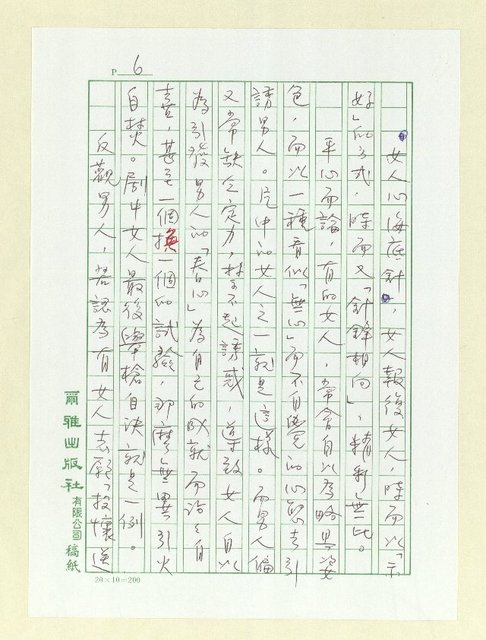 P 6
女人心海底針,女人報復女人,時而以「示
好」的方式,時而又「針鋒相向」,精彩無比。
平心而論,有的女人,常會自以為略具姿
色,而以一種看似「無心」而不自覺的心態去引
誘男人。片中的女人之一就是這樣。而男人偏
又常缺乏定力,禁不起誘惑,導致女人自以
為引發男人的「春心」為自己的成就而沾沾自
喜,甚至一個換一個的試驗,那麼無異引火
自焚。劇中女人最後舉槍自決就是一例。
反觀男人,若認為有女人志願「投懷送
爾雅出版社有限公司稿紙
20×10=200